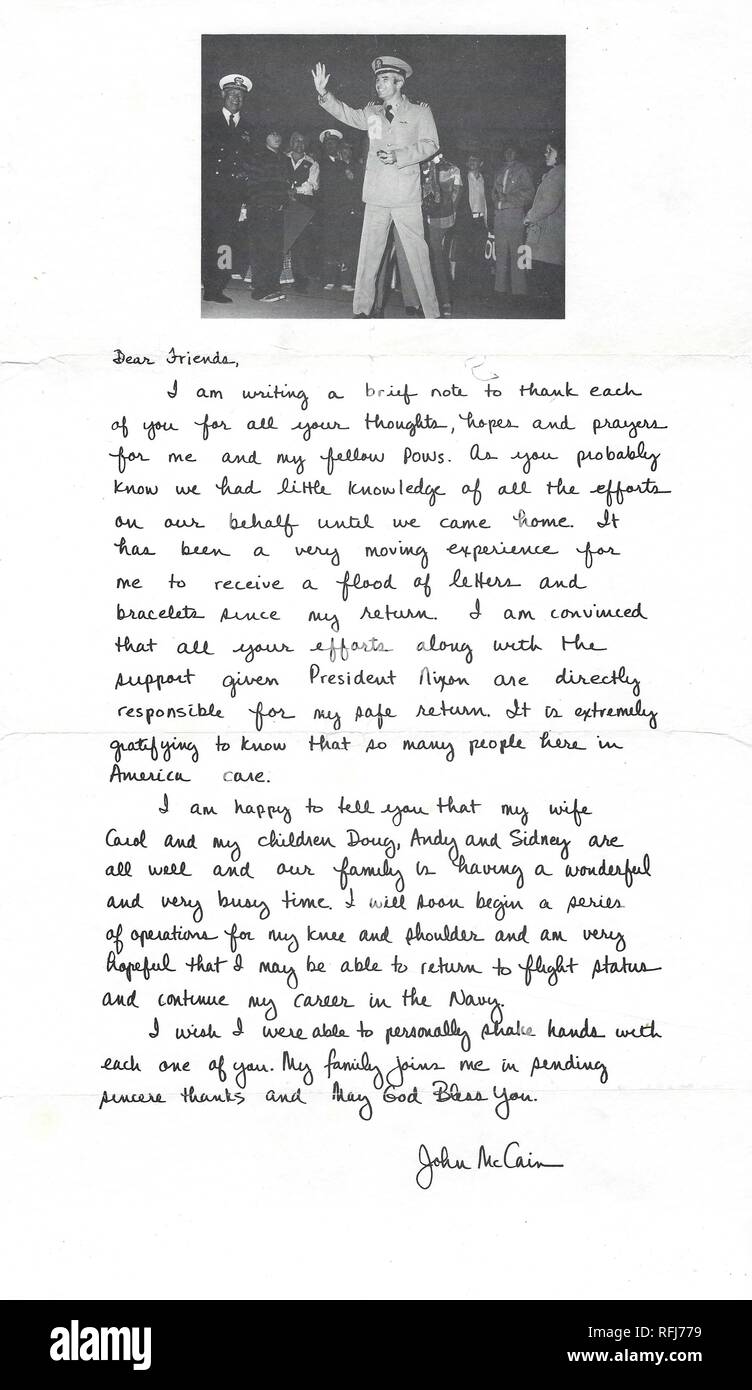 Dear Friends,
I am writing a brief note to thank each
of you for all your thoughts, hopes and prayers
for me and my fellow POWs. As you probably
know we had little knowledge of all the efforts
on our behalf until we came home. It
has been a very moving experience for
me to receive a flood of letters and
bracelets since my return. I am convinced
that all your efforts along with the
support given President Nixon are directly
responsible for my safe return. It is extremely
gratifying to know that so many people here in
America care.
I am happy to tell you that my wife
Carol and my children Doug, Andy and Sidney are
all well and our family is having a wonderful
and very busy time. I will soon begin a series
of operations for my knee and shoulder and am very
hopeful that I may be able to return to flight status
and continue my career in the Navy.
I wish I were able to personally shake hands with
each one of you. My family joins me in sending
sincere thanks and May God Bless You.
John McCain
a
a
a
a
alamy
Image ID: RFJ779
www.alamy.com